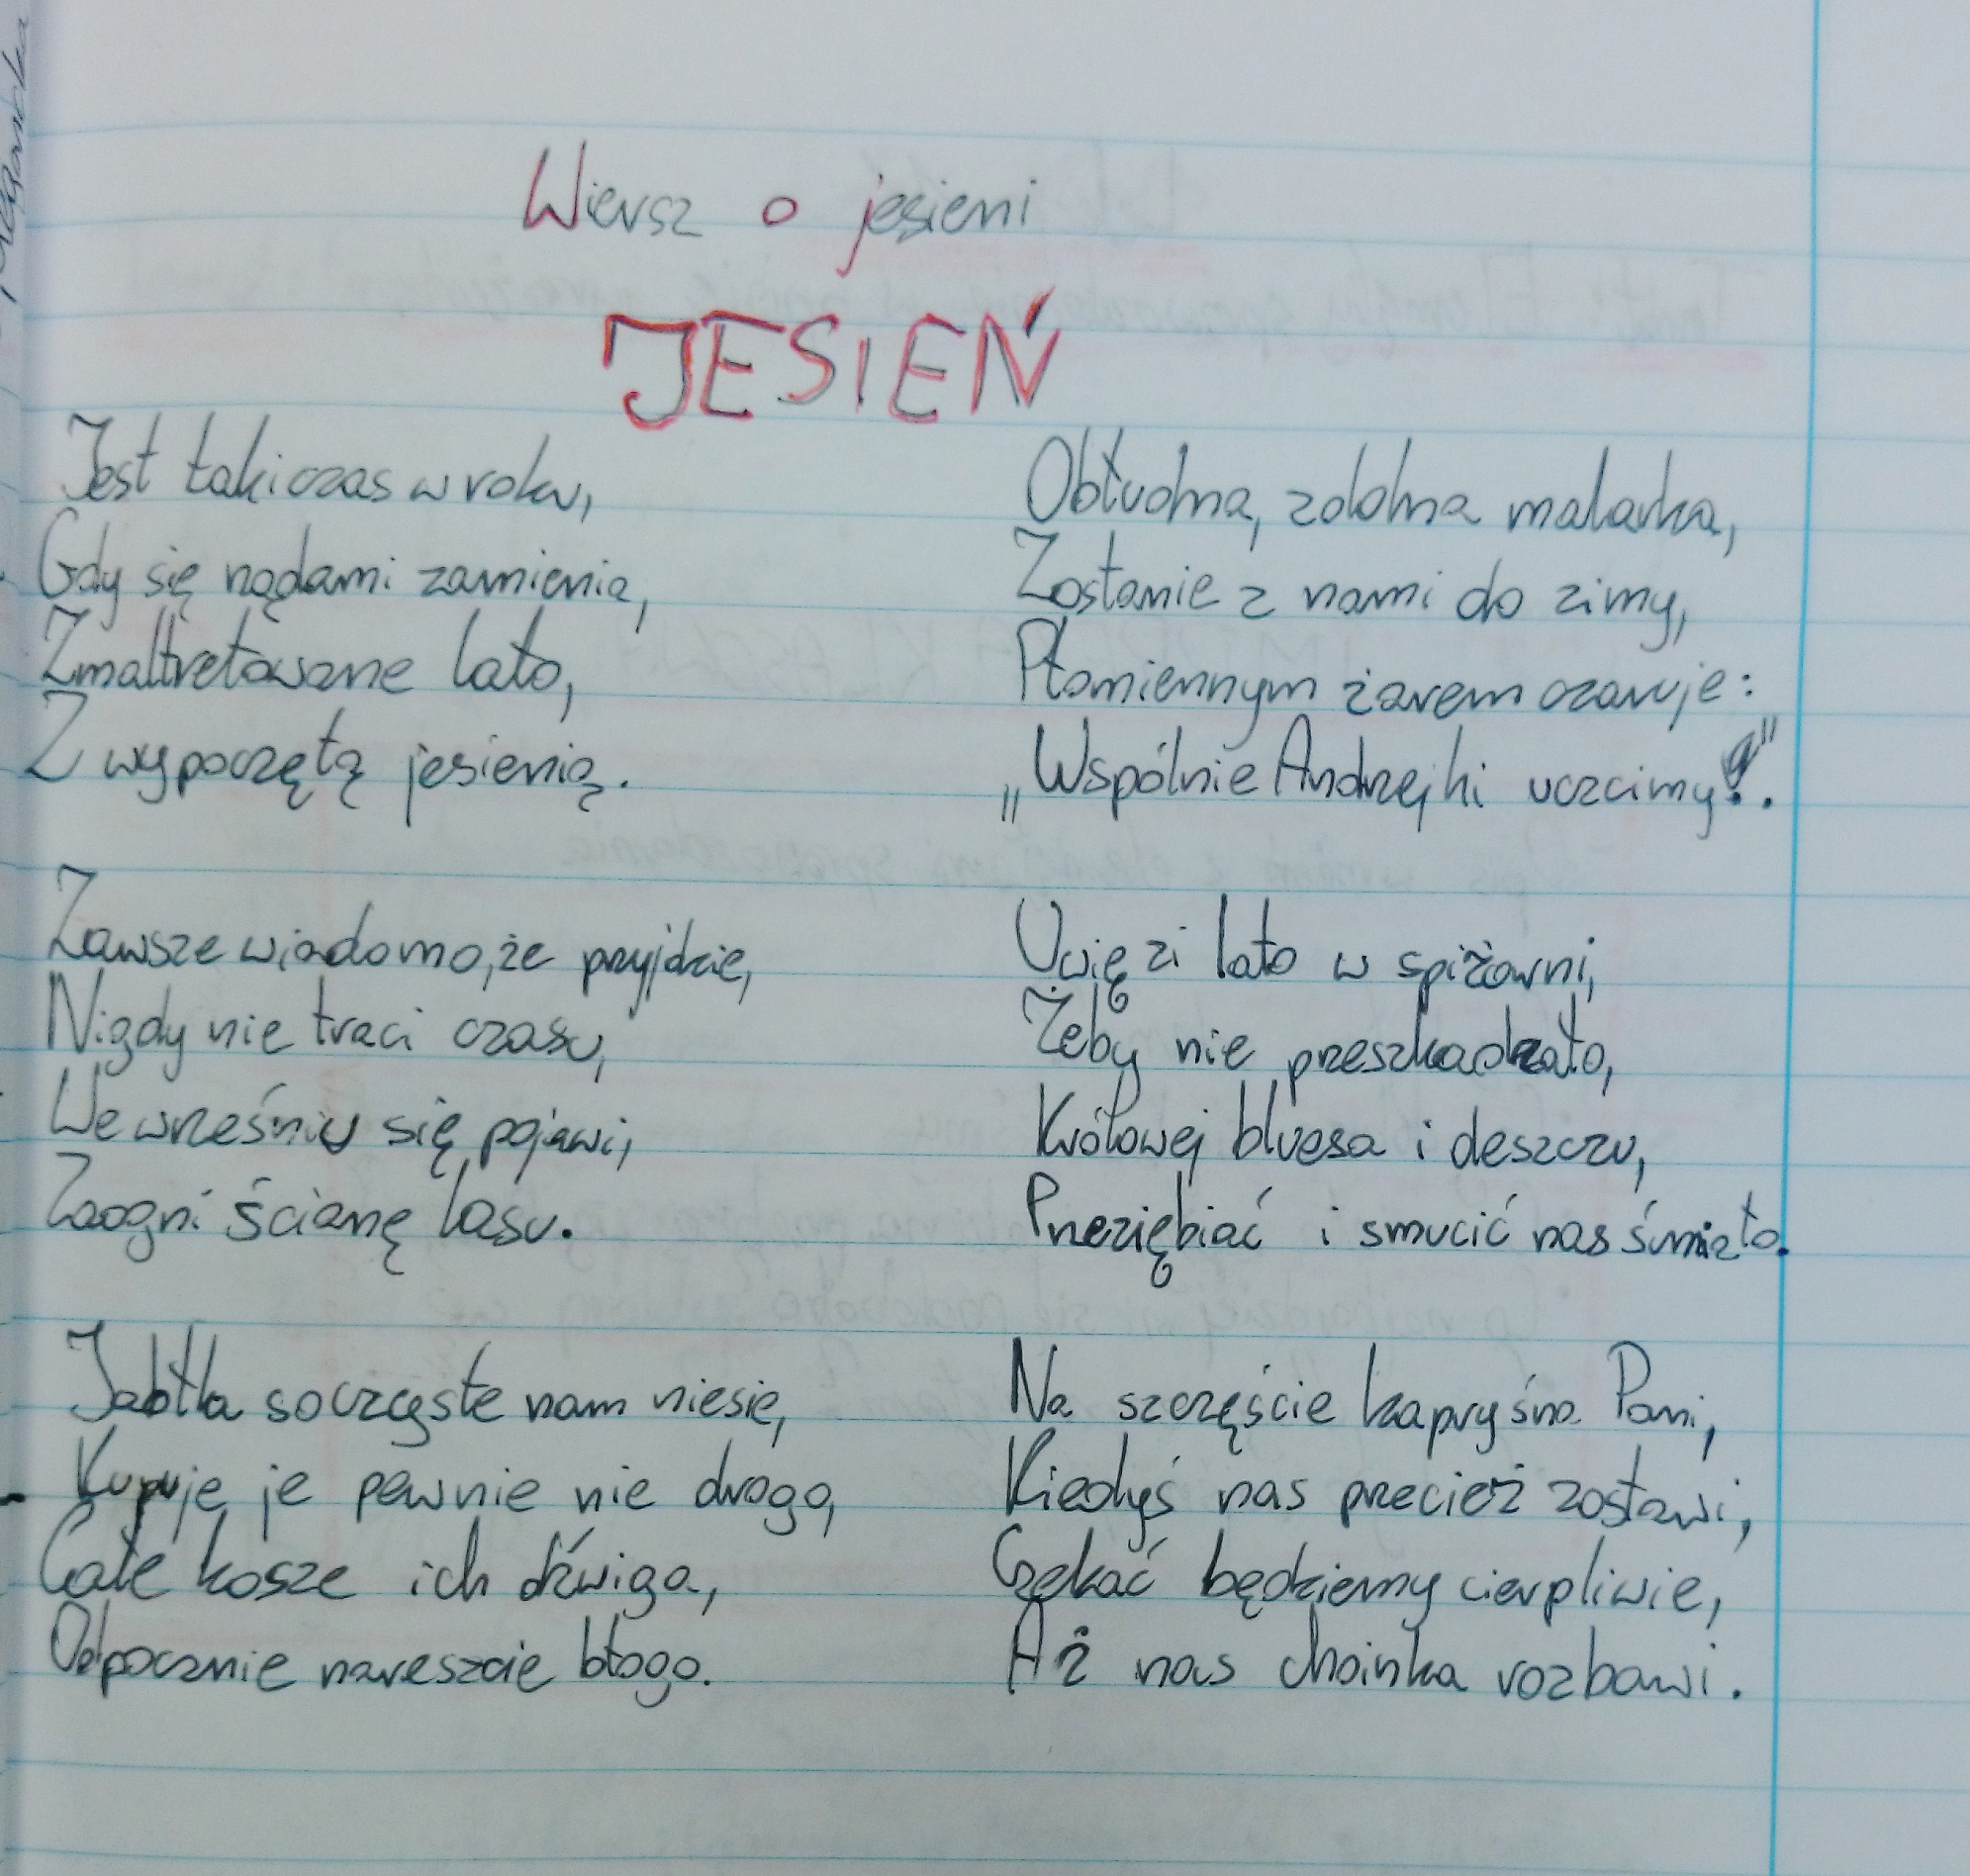 Wiersz o jesieni
JESIEŃ
Jest taki czas w roku,
Gdy się rządami zamienia,
Zmaltretowane lato,
Z wypoczętą jesienią.
Zawsze wiadomo, że przyjdzie,
Nigdy nie traci czasu,
We wrześniu się pojawi,
Zaogni ścianę lasu.
Jabłka soczyste nam niesie,
Kupuje je pewnie nie drogo,
Całe kosze ich dźwiga,
Odpocznie nareszcie błogo.
Obłudna, zdolna malarka,
Zostanie z nami do zimy,
Płomiennym żarem czaruje:
„Wspólnie Andrzejki uczcimy!".
Uwięzi lato w spiżarni,
Żeby nie przeszkadzało,
Królowej bluesa i deszczu,
Przeziębiać i smucić nas śmiało.
Na szczęście kapryśna Pani,
Kiedyś nas przecież zostawi,
Czekać będziemy cierpliwie,
Aż nas choinka rozbawi.